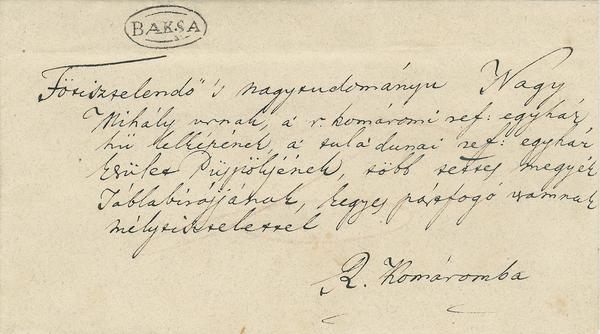 BAKSA
Főtisztelendő 's nagytudományu Nagy
Mihály urnak, a r. komáromi ref: egyház
hű lelkészének, a tuladunai ref: egyház
kerület Püspökjének, több tettes megyék
Táblabirájjának, kegyes pártfogó uramnak
mélytisztelettel
R. Komáromba